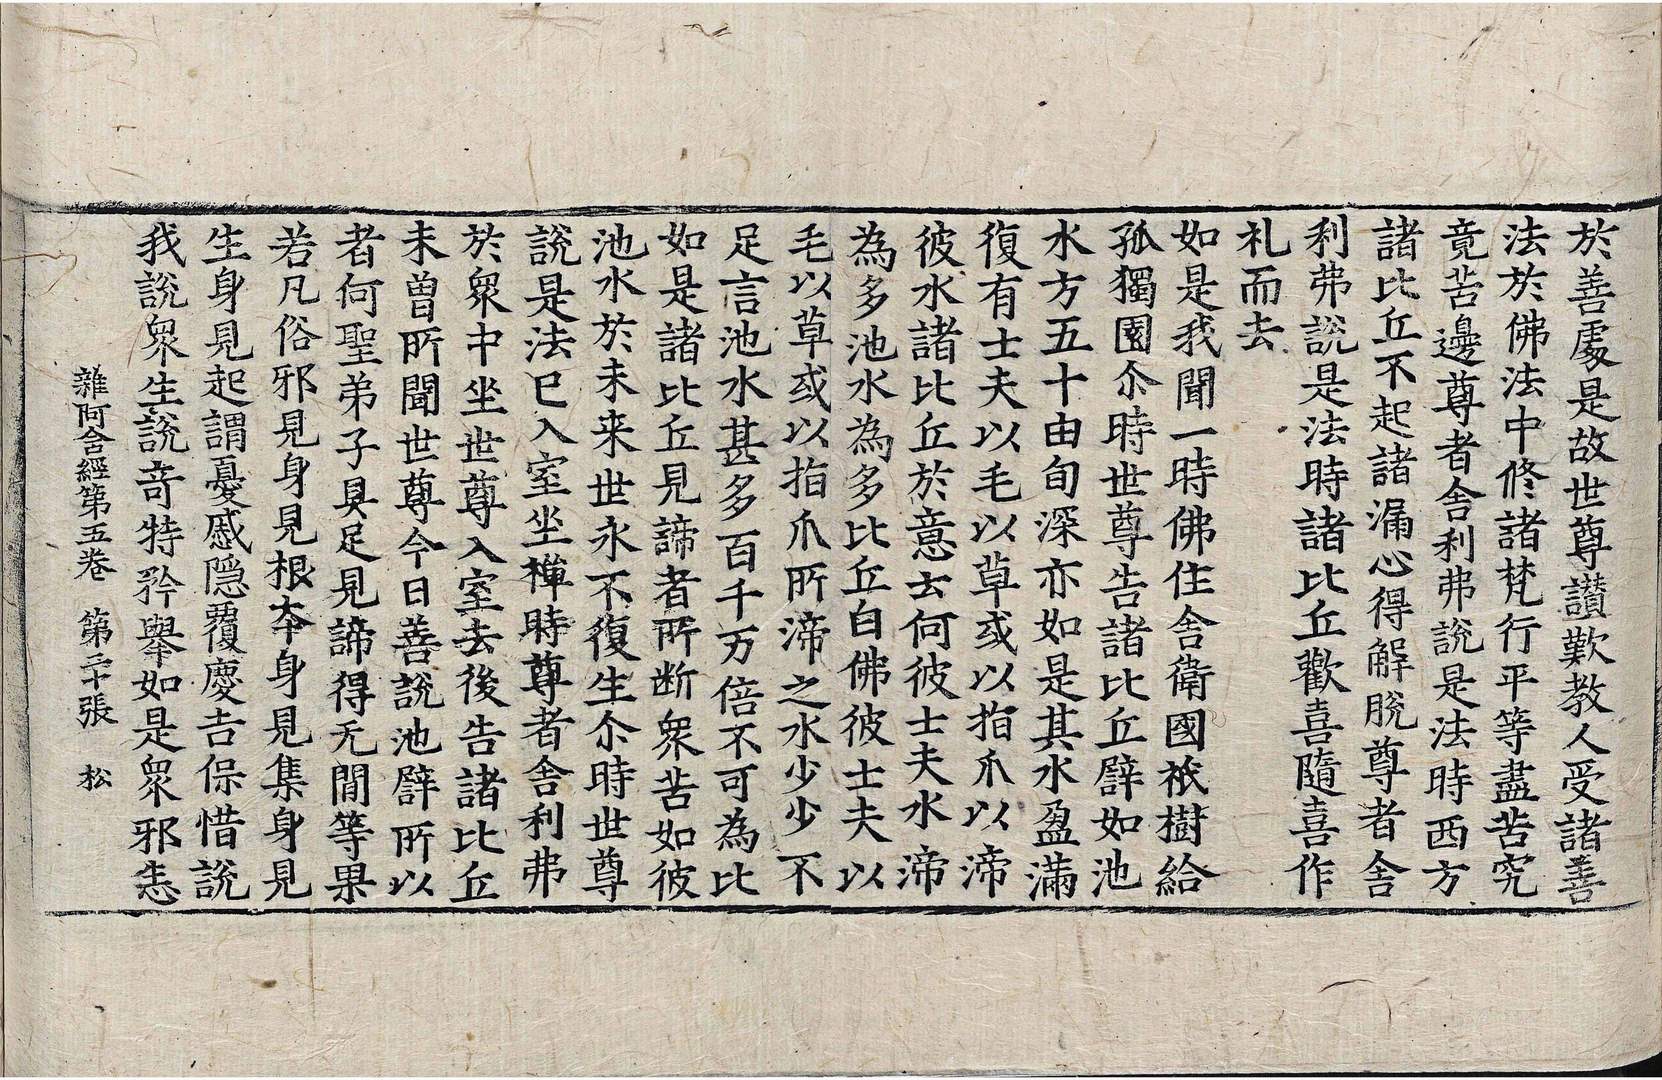 於善處是故世尊讃歎教人受諸善
法於佛法中修諸梵行平等盡苦究
竟苦邊尊者舍利弗說是法時西方
諸比丘不起諸漏心得解脫尊者舍
利弗說是法時諸比丘歡喜隨喜作
礼而去
如是我聞一時佛住舍衛國祇樹給
孤獨園尒時世尊告諸比丘譬如池
水方五十由旬深亦如是其水盈滿
復有士夫以毛以草或以指爪以渧
彼水諸比丘於意云何彼士夫水渧
為多池水為多比丘白佛彼士夫以
毛以草或以指爪所渧之水少少不
足言池水甚多百千万倍不可為比
如是諸比丘見諦者所断衆苦如彼
池水於未来世永不復生尒時世尊
說是法已入室坐禪時尊者舍利弗
於衆中坐世尊入室去後告諸比丘
未曽所聞世尊今日善說池譬所以
者何聖弟子具足見諦得无閒等果
若凡俗邪見身見根本身見集身見
生身見起謂憂慼隠覆慶吉保惜說
我說衆生說竒特矜舉如是衆邪悉
雜阿含經第五卷　第二十張　松